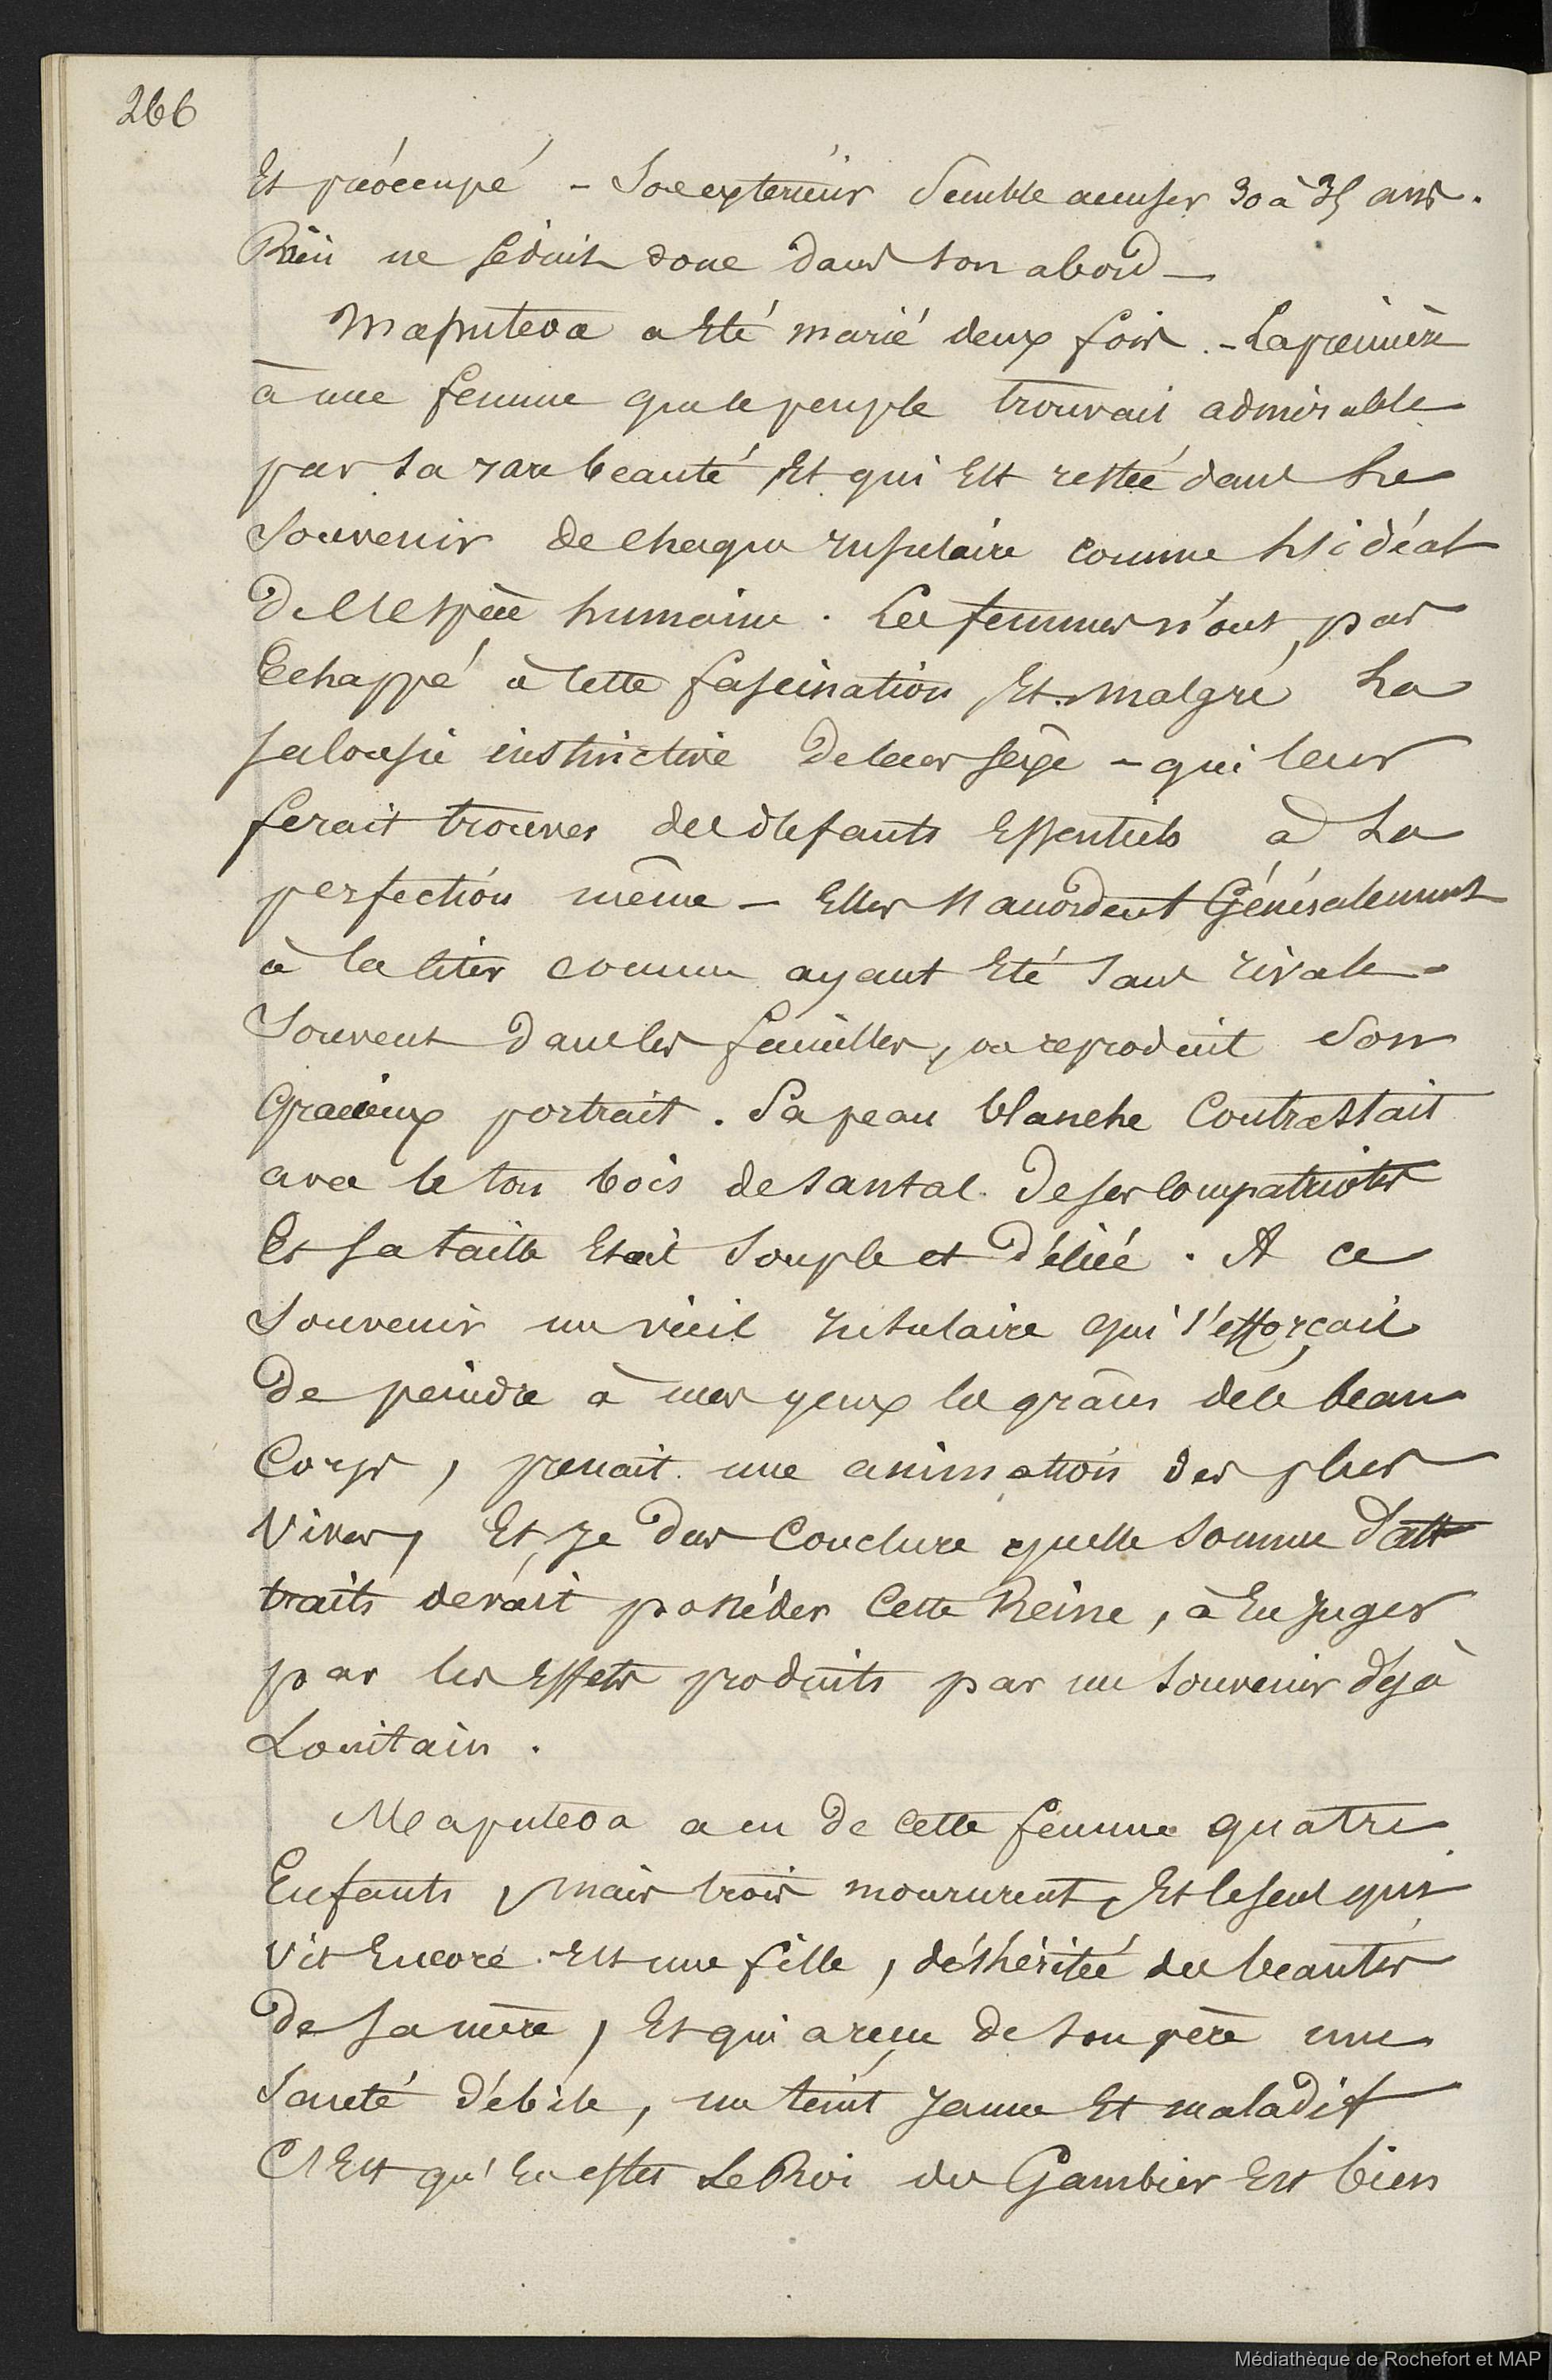 266
Et préoccupé - Son extérieur Semble accuser 30 à 35 ans.
Rien ne séduit donc dans son abord —
Maputeoa a Eté marié deux fois. - La première
à une femme que le peuple trouvait admirable
par sa rare beauté, Et qui Est restée dans le
Souvenir de chaque insulaire comme l'idéal
de l'Espèce humaine. Les femmes n'ont pas
Echappé à cette fascination, Et malgré la
jalousie instinctive de leur sexe - qui leur
ferait trouver des défauts Essentiels à la
perfection même — Elles s'accordent Généralement
à la citer comme ayant Eté sans rivale -
Souvent dans les familles, on reproduit Son
Gracieux portrait. Sa peau blanche Contrastait
avec le ton bois de santal de ses Compatriotes
Et sa taille Etait Souple et déliée. A ce
Souvenir un vieil insulaire qui s'efforçait
de peindre à mes yeux les grâces de ce beau
Corps, prenait une animation des plus
Vives, Et je dus Conclure quelle Somme d'att
traits devait posséder Cette Reine, à En juger
par les Effets produits par un Souvenir déjà
Lointain.
Maputeoa a eu de cette femme quatre
Enfants, mais trois moururent, Et le seul qui
vit Encore Est une fille, déshéritée des beautés
de sa mère, Et qui a reçu de son père une
Santé débile, un teint jaune Et maladif
C'Est qu'En effet Le Roi des Gambier Est bien
Médiathèque de Rochefort et MAP